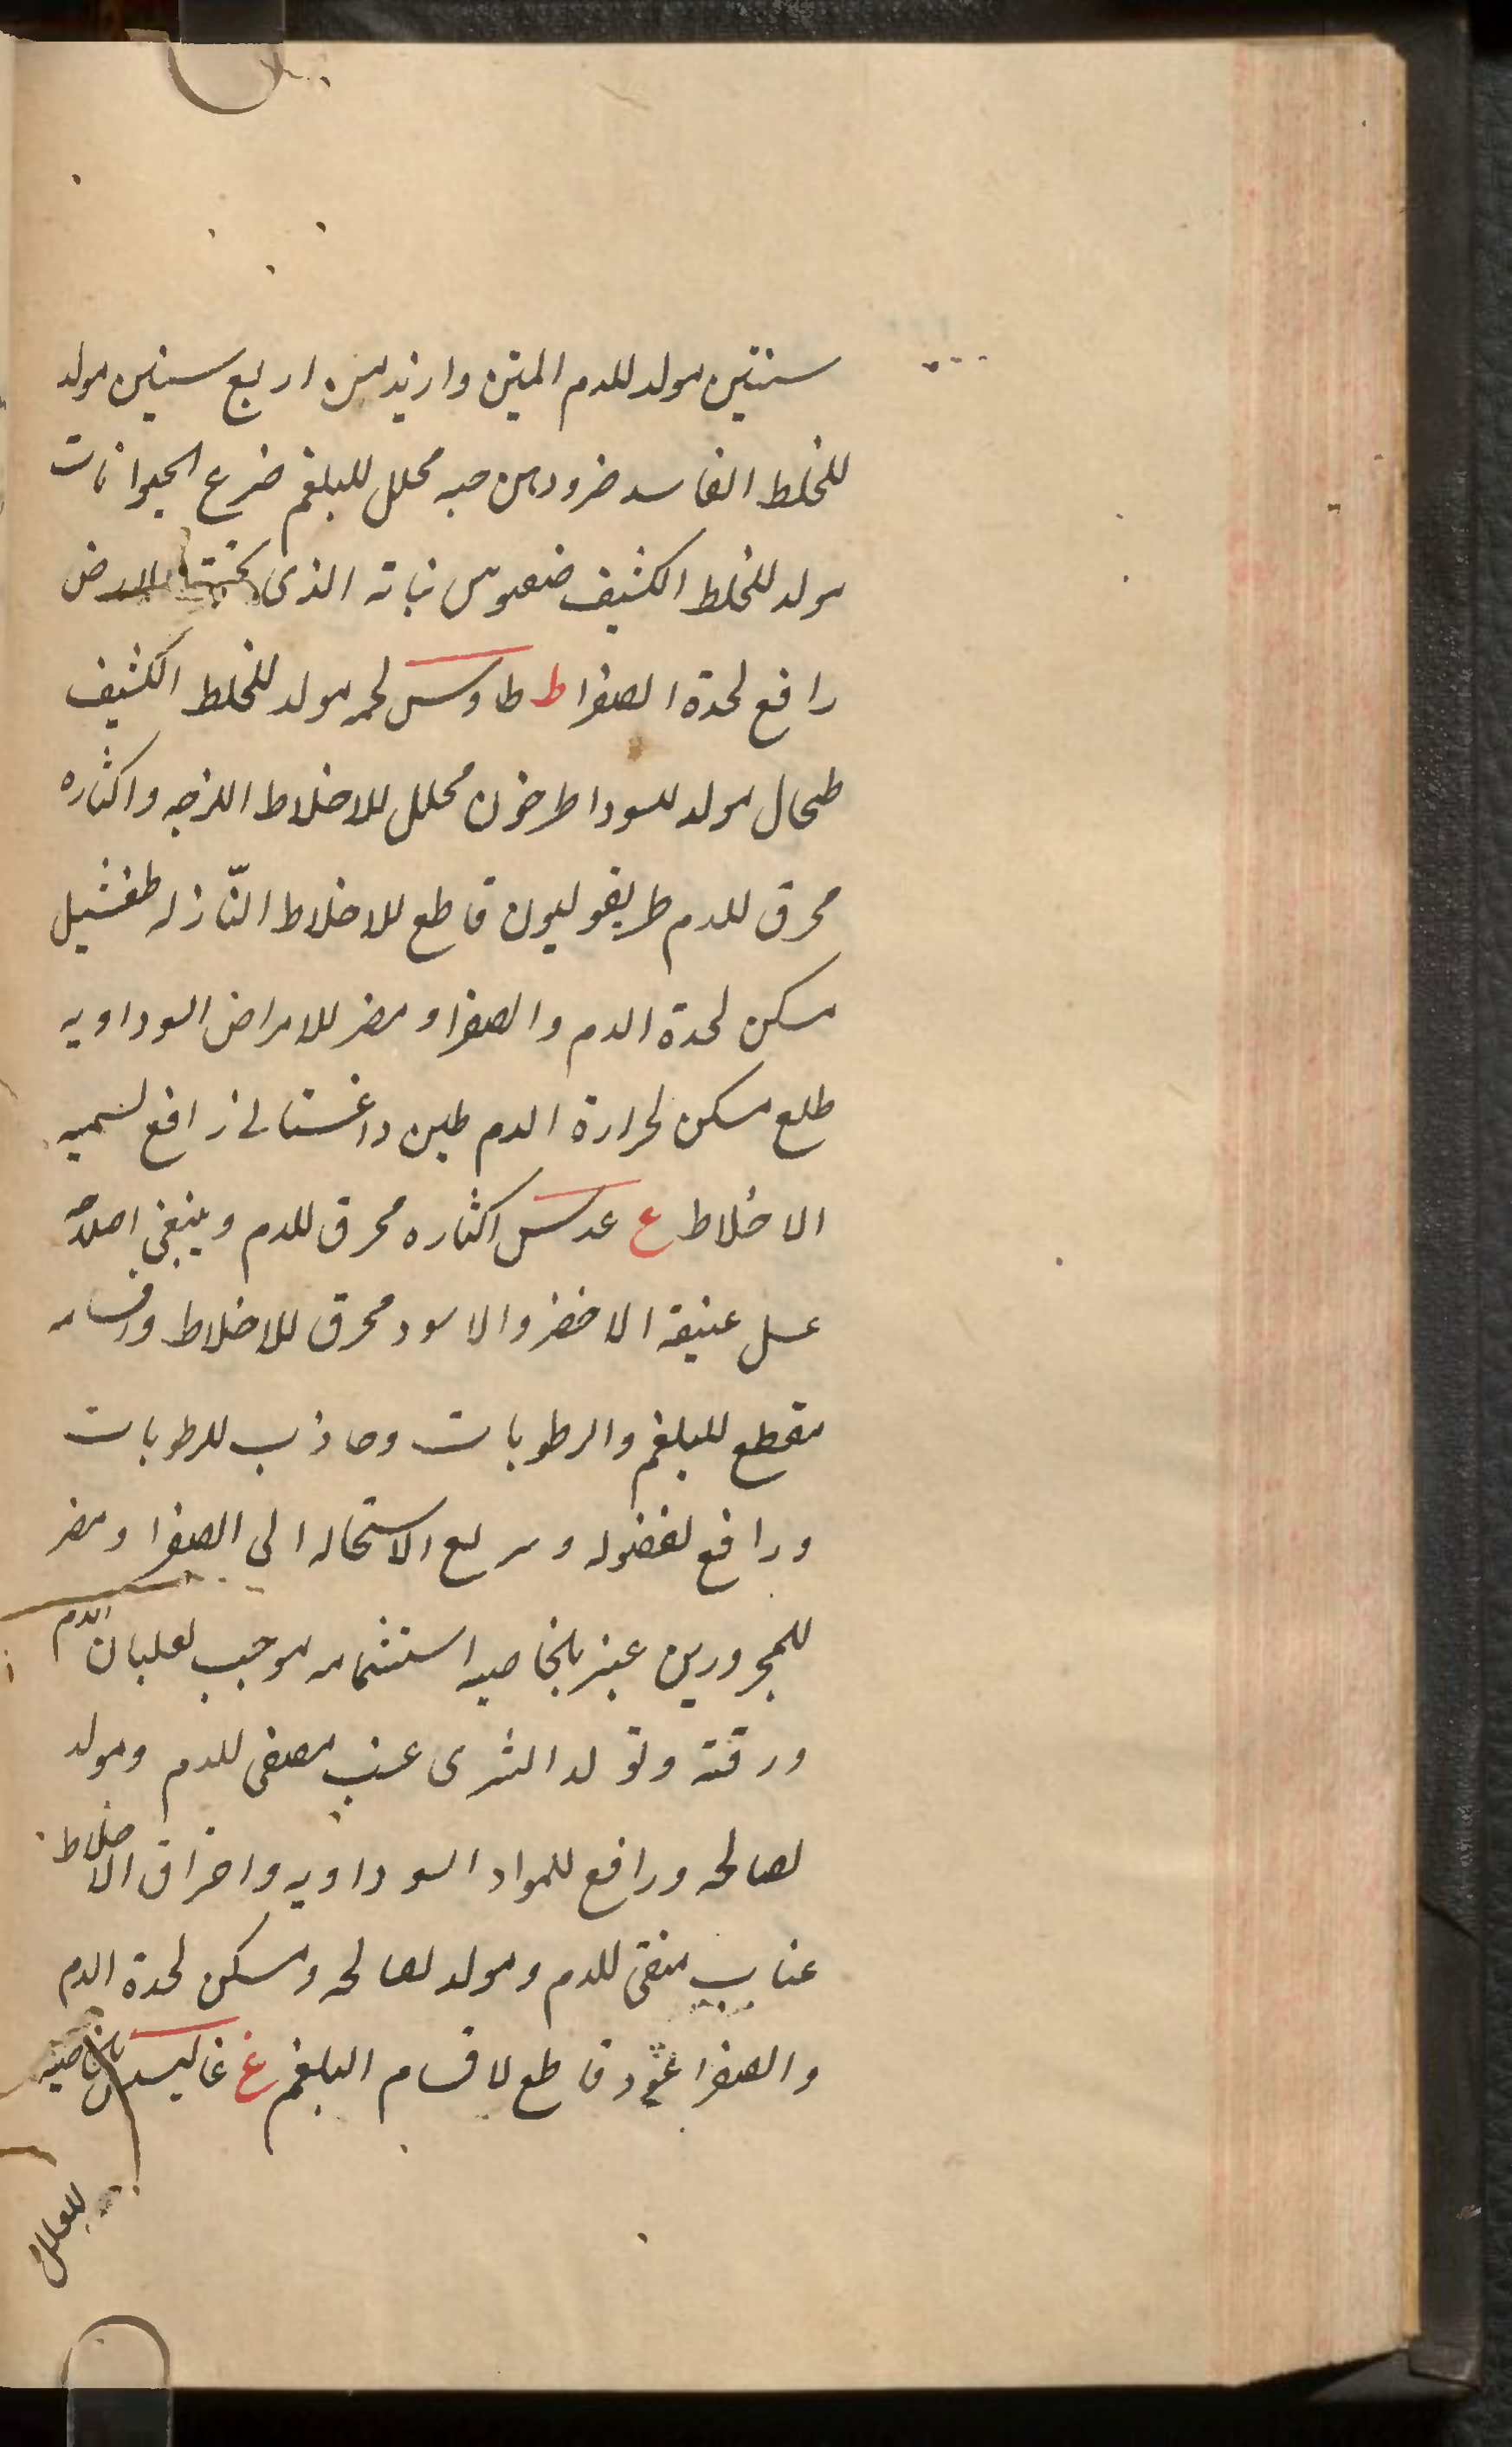 سنتين مولد للدم المتين وازيد من اربع سنين مولد
للخلط الفاسد ضرو دهن حبه محلل للبلغم ضرع الحيوانات
مولد للخلط الكثيف ضغبوس نباته الذى تحت الارض
رافع لحدة الصفرا ط طاوس لحمه مولد للخلط الكثيف
طحال مولد للسودا طرخون محلل للاخلاط اللزجه واكثاره
محرق للدم طريفوليون قاطع للاخلاط النّازله طفشيل
مسكن لحدة الدم والصفرا ومضر للامراض السوداويه
طلع مسكن لحرارة الدم طين داغستانى رافع لسميه
الاخلاط ع عدس اكثاره محرق للدم وينبغى اصلاحه
عسل عتيقه الاخضر والاسود محرق للاخلاط واقسامه
مقطع للبلغم والرطوبات وجاذب للرطوبات
ورافع لفضوله وسريع الاستحاله الى الصفرا ومضر
للمحرورين عنبر بالخاصيه استشمامه موجب لغليان الدم
ورقته وتولد الشرى عنب مصفى للدم ومولد
لصالحه ورافع للمواد السوداويه واحراق الاخلاط
عناب منقى للدم ومولد لصالحه ومسكن لحدة الدم
والصفرا عود قاطع لاقسام البلغم غ غاليسس بالخاصيه
للعلل